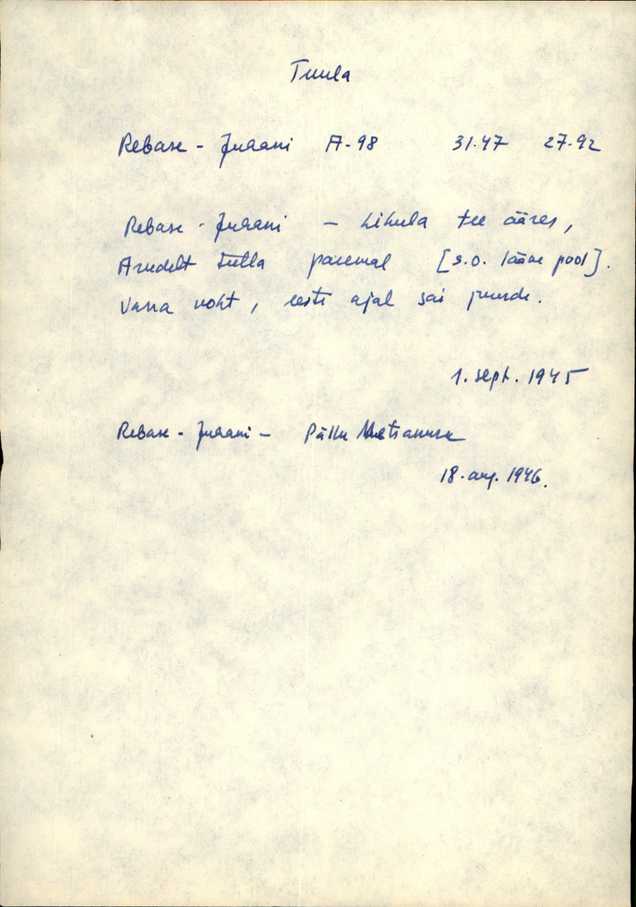 Tuula
Rebase - Juraani A-98 31.47 27.92
Rebase - Juraani - Lihula tee ääres,
Arudelt tulla paremal [s.o. lääne pool].
Vana koht, eesti ajal sai juurde.
1. sept. 1945
Rebase - Juraani -
18. aug. 1946.